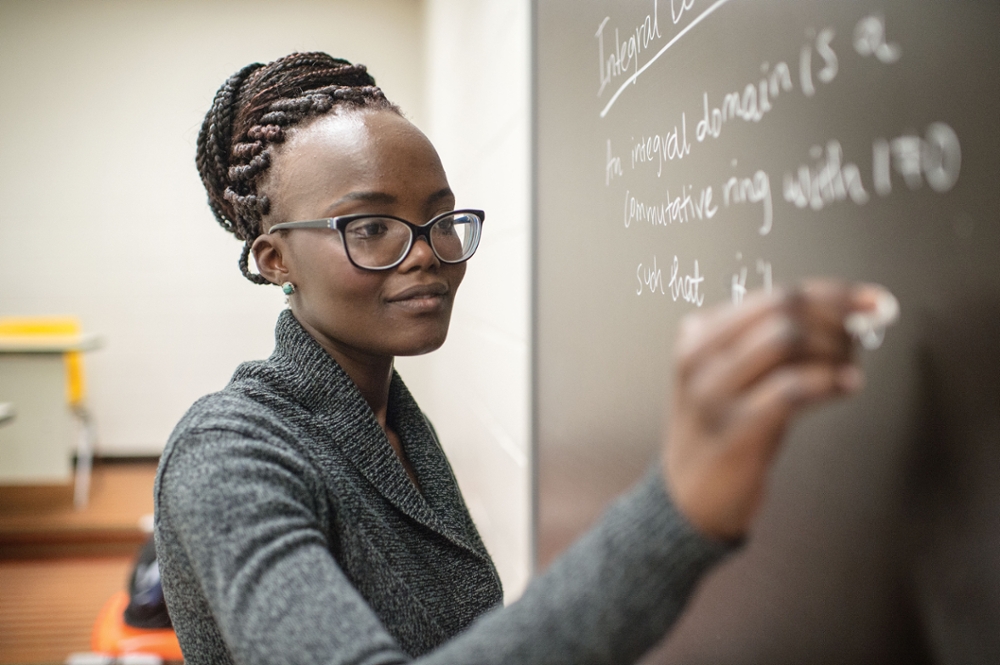 Integral
An integral domain is a
commutative ring with 1≠0
such that